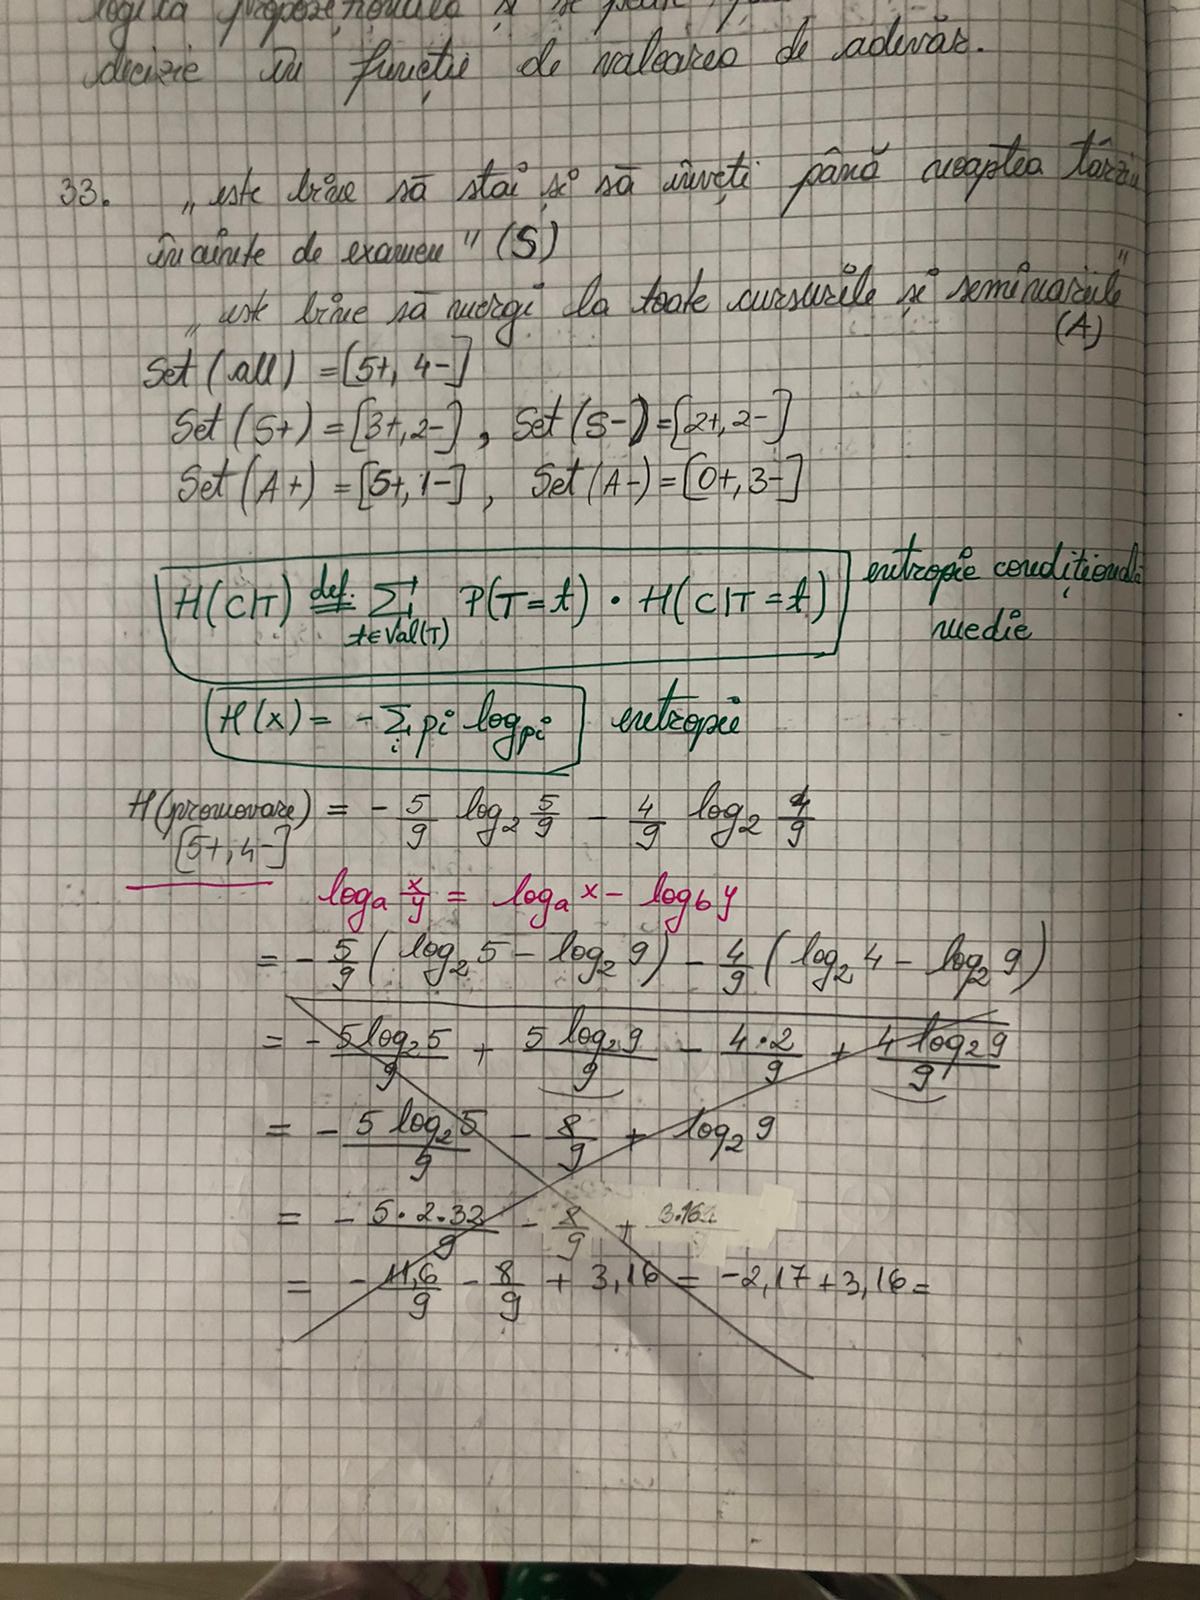 logica
dicizie în funcție de valoarea de adevăr.
33. „este bine să stai și să înveți până noaptea târziu
înainte de examen" (S)
„este bine să mergi la toate cursurile și seminariile"
(A)
Set (all) = [5+, 4-]
Set (S+) = [3+, 2-], Set (S-) = [2+, 2-]
Set (A+) = [5+, 1-], Set (A-) = [0+, 3-]
H(C|T) def. = Σ t∈Val(T) P(T=t) · H(C|T=t) entropie condițională
medie
H(x) = - Σ i pi log pi entropie
H(promovare) = - 5/9 log₂ 5/9 - 4/9 log₂ 4/9
[5+, 4-]
logₐ x/y = logₐ x - log_b y
= - 5/9 (log₂ 5 - log₂ 9) - 4/9 (log₂ 4 - log₂ 9)
= - 5 log₂ 5/9 + 5 log₂ 9/9 - 4·2/9 + 4 log₂ 9/9
= - 5 log₂ 5/9 - 8/9 + log₂ 9
= - 5·2.32/9 - 8/9 +
= - 11,6/9 - 8/9 + 3,16 = -2,17 + 3,16 =